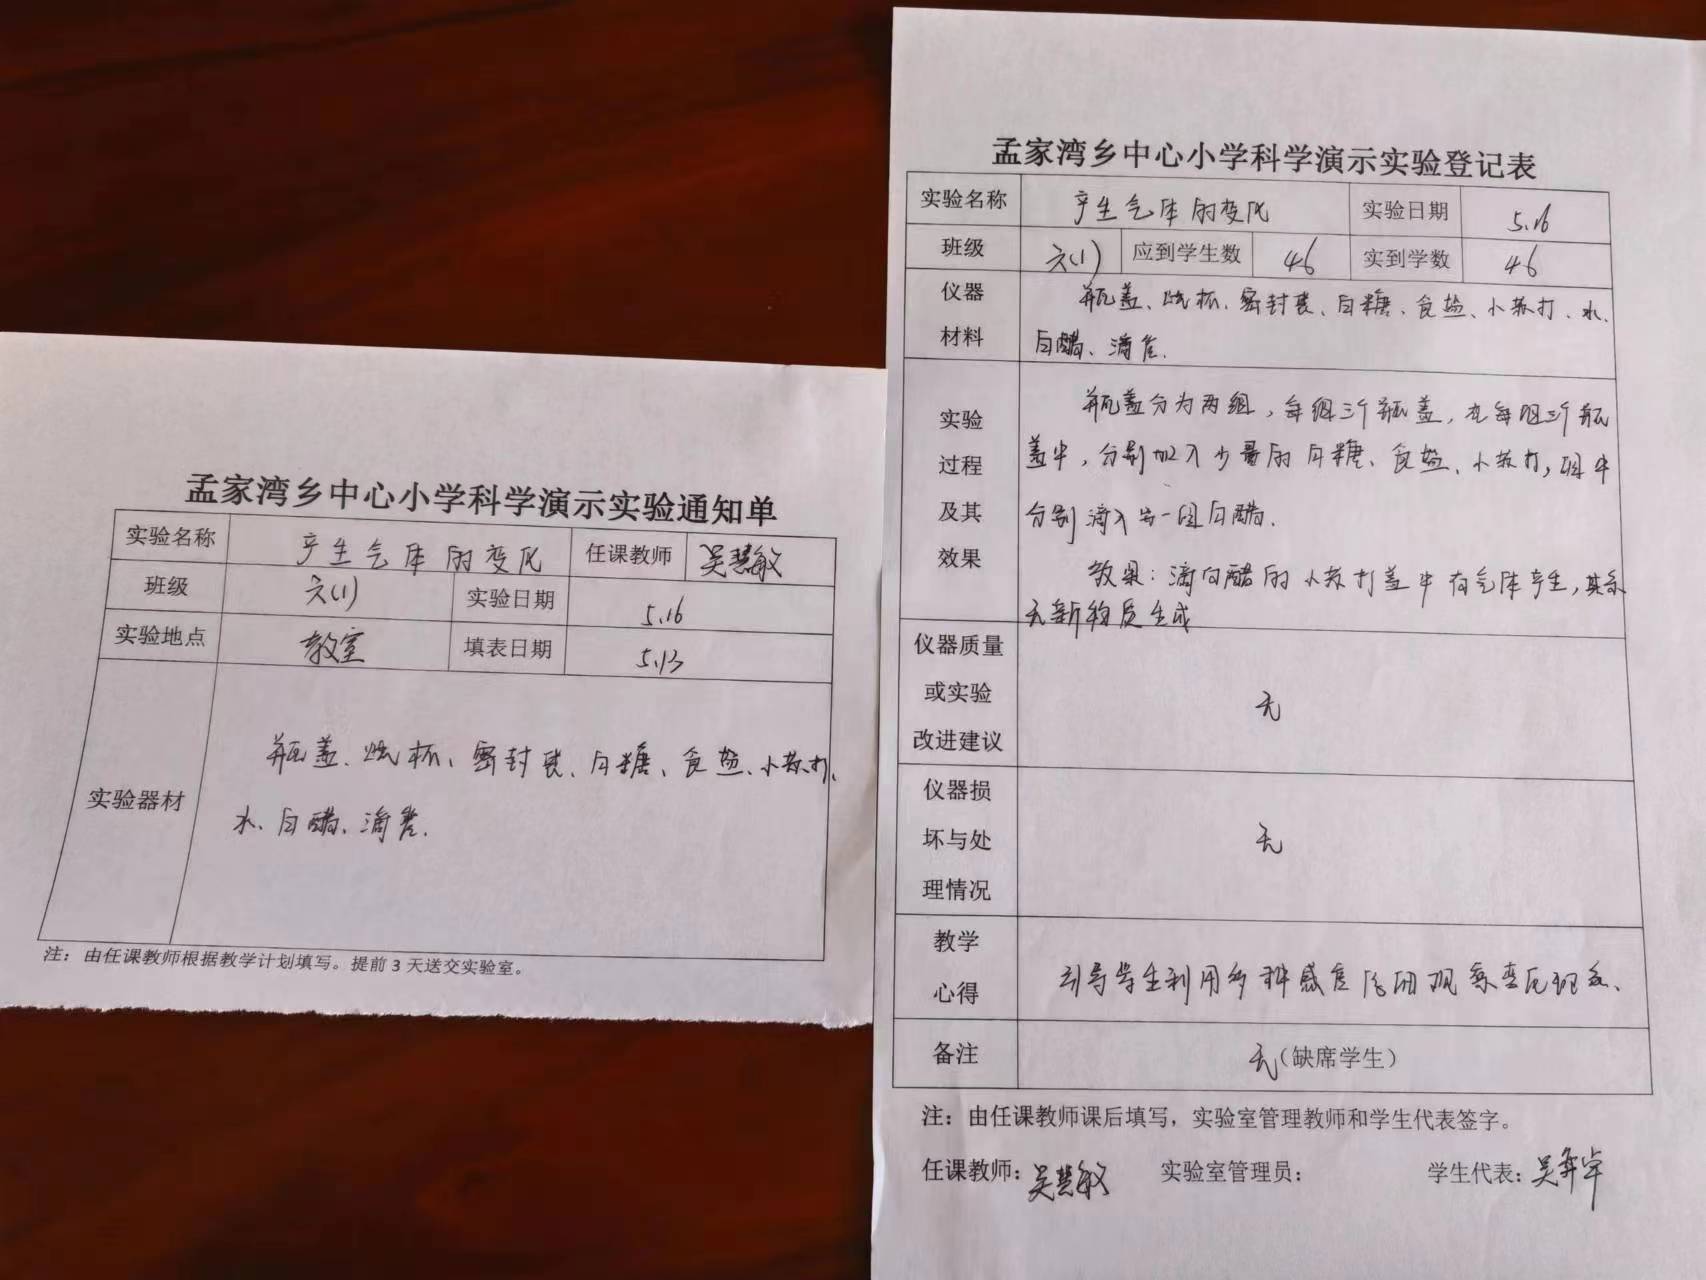 孟家湾乡中心小学科学演示实验通知单
实验名称 产生气体的变化 任课教师 吴慧敏
班级 六(1) 实验日期 5.16
实验地点 教室 填表日期 5.13
实验器材
瓶盖、烧杯、密封袋、白糖、食盐、小苏打、
水、白醋、滴管.
注：由任课教师根据教学计划填写。提前 3 天送交实验室。
孟家湾乡中心小学科学演示实验登记表
实验名称 产生气体的变化 实验日期 5.16
班级 六(1) 应到学生数 46 实到学数 46
仪器材料
瓶盖、烧杯、密封袋、白糖、食盐、小苏打、水、
白醋、滴管.
实验过程及其效果
瓶盖分为两组，每组三个瓶盖，在每组三个瓶
盖中，分别加入少量的白糖、食盐、小苏打，
分别滴入 另一组白醋.
效果：滴白醋的小苏打盖中有气体产生，其余
无新物质生成
仪器质量或实验改进建议
无
仪器损坏与处理情况
无
教学心得
引导学生利用多种感官 观察 现象.
备注 无(缺席学生)
注：由任课教师课后填写，实验室管理教师和学生代表签字。
任课教师：吴慧敏 实验室管理员： 学生代表：吴